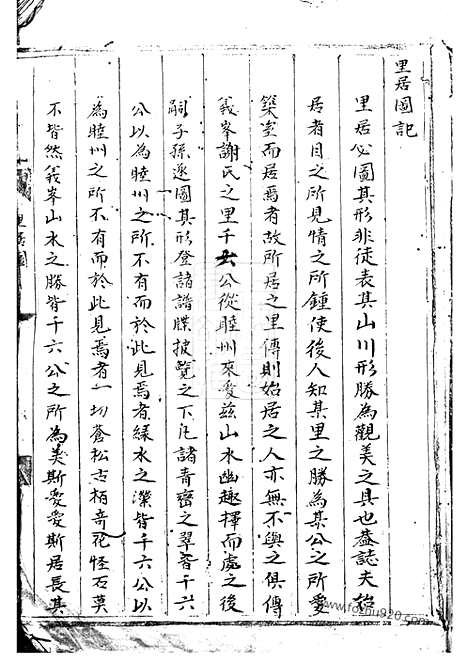 里居圖記
里居必圖其形非徒表其山川形勝為觀美之具也蓋誌夫始
居者目之所見情之所鍾使後人知某里之勝為某公之所愛
築室而居焉者故所居之里傳則始居之人亦無不與之俱傳
義峯謝氏之里千六公從睦州來愛茲山水幽趣擇而處之後
嗣子孫遂圖其形登諸譜牒披覽之下凡諸青巒之翠皆千六
公以為睦州之所不有而於此見焉者綠水之濼皆千六公以
為睦州之所不有而於此見焉者一切蒼松古栢奇花怪石莫
不皆然義峯山水之勝皆千六公之所為美斯愛愛斯居長其
里居圖
www.foshu920.com